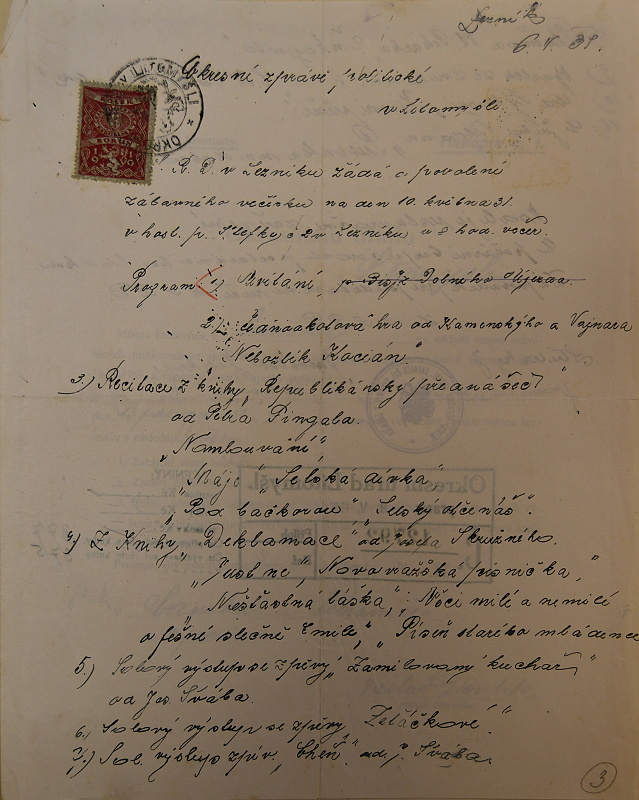 Lezník
6. V. 31.
Okresní správě politické
v Litomyšli.
R. D. v Lezníku žádá o povolení
zábavního večírku na den 10. května 31.
v host. p. Flefky č 2 v Lezníku v 8 hod. večer.
Program: 1) Uvítání,
2.) Jednoaktová hra od Kamenského a Vajnara
"Nebožtík Kacián"
3.) Recitace z knihy "Republikánský přednášeč"
od Petra Pingala.
"Namlouvání",
"Máje" "Selská dívka",
"Pod bačkorou" "Selský otčenáš".
4) Z Knihy "Deklamace" od Josefa Skružného.
"Just ne", "Novopražská písnička",
"Nešťastná láska", "Věci milé a nemilé
o fešné slečně Emile", "Píseň starého mládence
5.) Solový výstup se zpěvy "Zamilovaný kuchař"
od Jos. Švába.
6.) Solový výstup se zpěvy "Zeláčkové".
7.) Sol. výstup zpěv. od J. Švába.
3
OKRES V LITOMYŠLI
KOLEK
Okresní úřad Litomyšl.